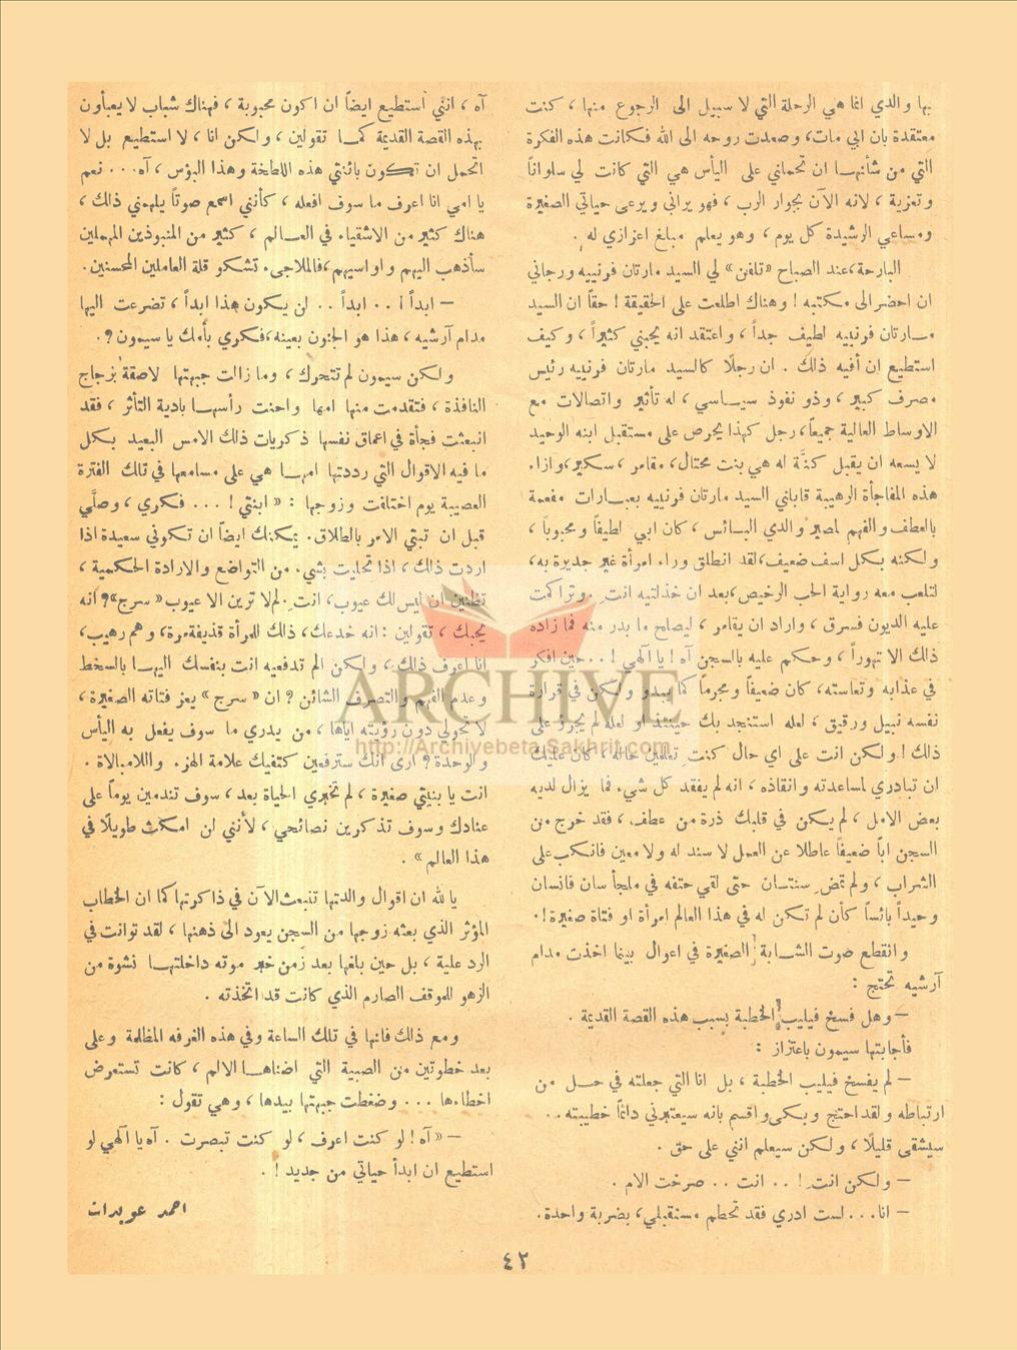 بها والدي انما هي الرحلة التي لا سبيل الى الرجوع منها ، كنت
معتقدة بان ابي مات، وصعدت روحه الى الله فكانت هذه الفكرة
التي من شأنها ان تحملني على اليأس هي التي كانت لي سلواناً
وتعزية ، لانه الآن بجوار الرب ، فهو يراني ويرعى حياتي الصغيرة
ومساعي الرشيدة كل يوم ، وهو يعلم مبلغ اعزازي له .
البارحة،عند الصباح «تلفن» لي السيد مارتان فرنييه ورجاني
ان احضر الى مكتبه ! وهناك اطلعت على الحقيقة ! حقاً ان السيد
مارتان فرنييه لطيف جداً ، واعتقد انه يحبني كثيراً ، وكيف
استطيع ان أفيه ذلك . ان رجلًا كالسيد مارتان فرنييه رئيس
مصرف كبير ، وذو نفوذ سياسي ، له تأثير واتصالات مع
الاوساط العالية جميعاً، رجل كهذا يحرص على مستقبل ابنه الوحيد
لا يسعه ان يقبل كنَّة له هي بنت محتال، مقامر ، سكير،وازاء
هذه المفاجأة الرهيبة قابلني السيد مارتان فرنييه بعبارات مفعمة
بالعطف والفهم لمصير والدي البائس ، كان ابي لطيفاً ومحبوباً ،
ولكنه بكل اسف ضعيف،لقد انطلق وراء امرأة غير جديرة به،
لتلعب معه رواية الحب الرخيص،بعد ان خذلتيه انتِ . وتراكمت
عليه الديون فسرق ، واراد ان يقامر ، ليصلح ما بدر منه فما زاده
ذلك الا تهوراً ، وحكم عليه بالسجن آه ! يا آلهي ! . . حين افكر
في عذابه وتعاسته، كان ضعيفاً ومجرماً كما يبدو ولكن في قرارة
نفسه نبيل ورقيق ، لعله استنجد بك حينئذ او لعله لم يجرؤ على
ذلك ! ولكن انت على اي حال كنت تعلمين حاله ، كان عليك
ان تبادري لمساعدته وانقاذه ، انه لم يفقد كل شيء فما يزال لديه
بعض الامل ، لم يكن في قلبك ذرة من عطف ، فقد خرج من
السجن اباً ضعيفاً عاطلا عن العمل لا سند له ولا معين فانكب على
الشراب ، ولم تمضِ سنتان حتى لقي حتفه في ملجأ سان فانسان
وحيداً بائساً كأن لم تكن له في هذا العالم امرأة او فتاة صغيرة !.
وانقطع صوت الشابة الصغيرة في اعوال بينما اخذت مدام
آرشيه تحتج :
— وهل فسخ فيليب الخطبة بسبب هذه القصة القديمة .
فأجابتها سيمون باعتزاز :
— لم يفسخ فيليب الخطبة ، بل انا التي جعلته في حل من
ارتباطه ولقد احتج وبكى واقسم بانه سيعتبرني دائماً خطيبته ..
سيشقى قليلًا ، ولكن سيعلم انني على حق .
— ولكن انتِ ! . . انت . . صرخت الام .
— انا... لست ادري فقد تحطم مستقبلي، بضربة واحدة.
آه ، انني أستطيع ايضاً ان اكون محبوبة ، فهناك شباب لا يعبأون
بهذه القصة القديمة كما تقولين ، ولكن انا ، لا استطيع بل لا
اتحمل ان تكون بائنتي هذه اللطخة وهذا البؤس ، آه... نعم
يا امي انا اعرف ما سوف افعله ، كأنني اسمع صوتاً يلهمني ذلك ،
هناك كثير من الاشقياء في العالم ، كثير من المنبوذين المهملين
سأذهب اليهم واواسيهم،فالملاجىء تشكو قلة العاملين المحسنين.
— ابداً ! . . ابداً . . لن يكون هذا ابداً ، تضرعت اليها
مدام آرشيه ، هذا هو الجنون بعينه،فكري بأمك يا سيمون ?.
ولكن سيمون لم تتحرك ، وما زالت جبهتها لاصقة بزجاج
النافذة ، فتقدمت منها امها واحنت رأسها بادية التأثر ، فقد
انبعثت فجأة في اعماق نفسها ذكريات ذلك الامس البعيد بكل
ما فيه الاقوال التي رددتها امها هي على مسامعها في تلك الفترة
العصيبة يوم اختلفت وزوجها : « ابنتي ! ... فكري ، وصلَّي
قبل ان تبتي الامر بالطلاق. يمكنك ايضاً ان تكوني سعيدة اذا
اردت ذلك ، اذا تحليت بشيء من التواضع والارادة الحكمية ،
تظنين ان ليس لك عيوب، انتِ . لم لا ترين الا عيوب «سرج»? انه
يحبك ، تقولين : انه خدعك، ذلك للمرأة قذيفة مرة، وهم رهيب،
انا اعرف ذلك ، ولكن الم تدفعيه انت بنفسك اليها بالسخط
وعدم الفهم والتصرف الشائن ? ان « سرج » يعز فتاته الصغيرة ،
لا تحولي دون رؤيته اياها ، من يدري ما سوف يفعل به اليأس
والوحدة ? ارى انك سترفعين كتفيك علامة الهزء واللامبالاة .
انت يا بنيتي صغيرة ، لم تخبري الحياة بعد ، سوف تندمين يوماً على
عنادك وسوف تذكرين نصائحي ، لأنني ان امكث طويلًا في
هذا العالم» .
يا لله ان اقوال والدتها تنبعث الآن في ذاكرتها كما ان الخطاب
المؤثر الذي بعثه زوجها من السجن يعود الى ذهنها ، لقد توانت في
الرد علية ، بل حين بلغها بعد زمن خبر موته داخلتها نشوة من
الزهو للموقف الصارم الذي كانت قد اتخذته .
ومع ذلك فانها في تلك الساعة وفي هذه الغرفه المظلمة وعلى
بعد خطوتين من الصبية التي اضناها الالم ، كانت تستعرض
اخطاءها ... وضغطت جبهتها بيدها ، وهي تقول :
— « آه ! لو كنت اعرف ، لو كنت تبصرت . آه يا آلهي لو
استطيع ان ابدأ حياتي من جديد ! .
احمد عويدات
٤٢
ARCHIVE
http://Archivebeta.Sakhrit.com